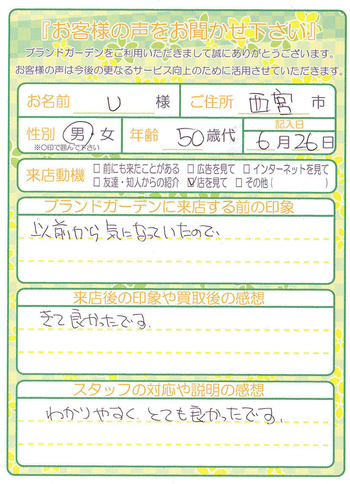 『お客様の声をお聞かせ下さい』
ブランドガーデンをご利用いただきまして誠にありがとうございます。
お客様の声は今後の更なるサービス向上のために活用させていただきます。
お名前 U 様 ご住所 西宮 市
性別 男・女 年齢 50歳代 記入日 6月26日
※○印で囲んで下さい
来店動機 □前にも来たことがある □広告を見て □インターネットを見て
□友達・知人からの紹介 ☑店を見て □その他( )
ブランドガーデンに来店する前の印象
以前から気になっていたので、
来店後の印象や買取後の感想
きて良かったです.
スタッフの対応や説明の感想
わかりやすく、とても良かったです.